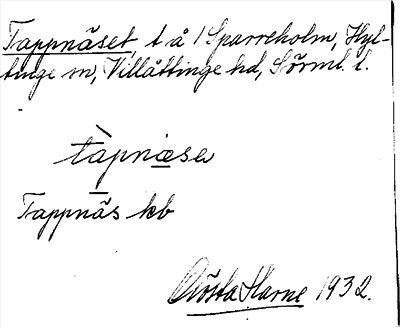 Tappnäset, t å 1 Sparreholm, Hyl-
tinge sn, Villåttinge hd, Sörml. l.
tàpnæsa
Tappnäs kb
Gösta Harne 1932.